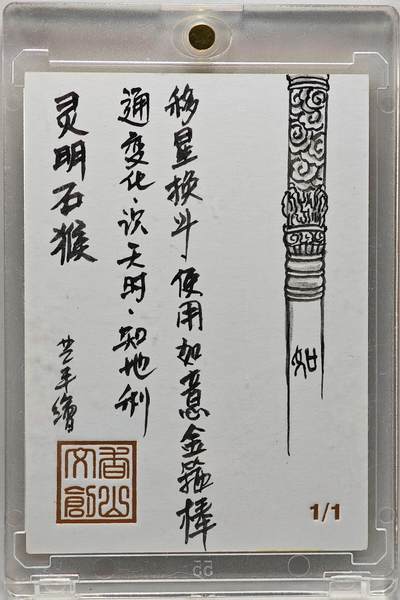 如
移星换斗、使用如意金箍棒
通变化、识天时、知地利
灵明石猴
平繪
香山
文創
1/1